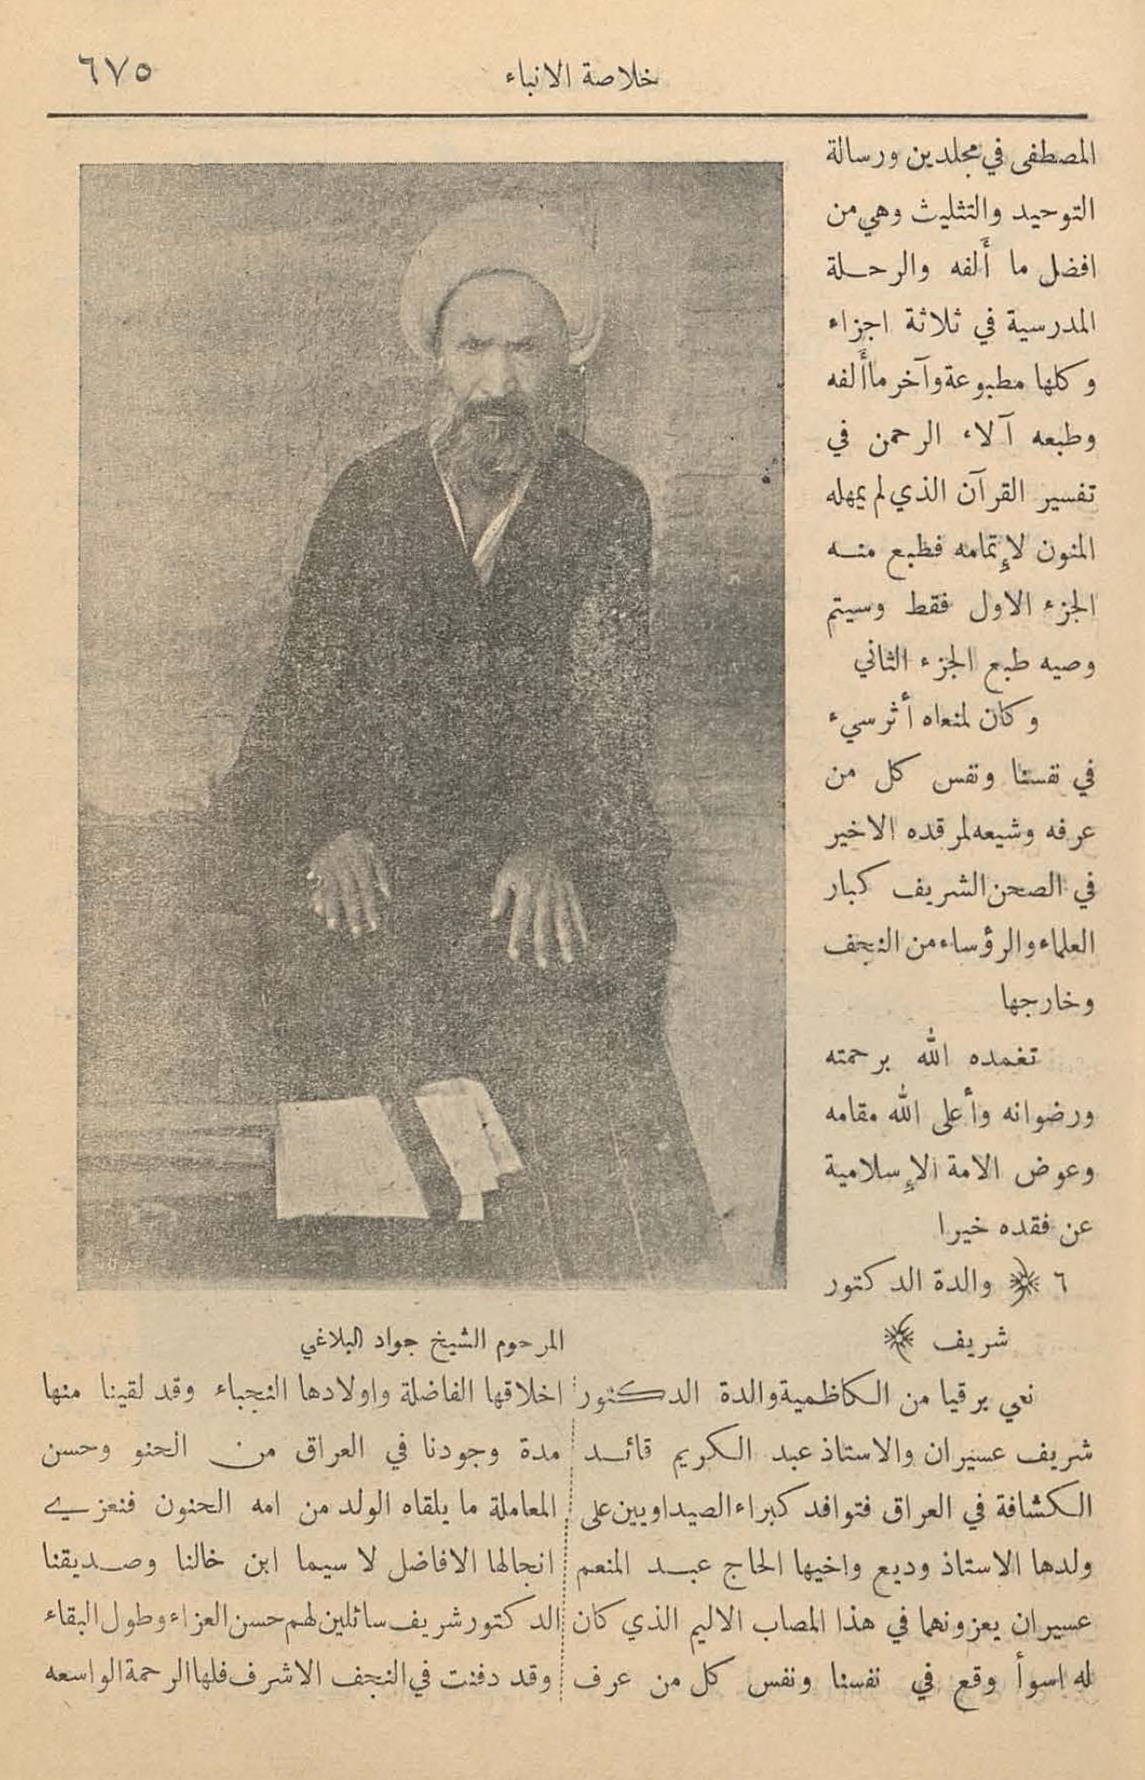 خلاصة الانباء
٦٧٥
المصطفى في مجلدين ورسالة
التوحيد والتثليث وهي من
افضل ما ألفه والرحلة
المدرسية في ثلاثة اجزاء
وكلها مطبوعة وآخر ما ألفه
وطبعه آلاء الرحمن في
تفسير القرآن الذي لم يمهله
المنون لإتمامه فطبع منه
الجزء الاول فقط وسيتم
وصيه طبع الجزء الثاني
وكان لمنعاه أثر سيء
في نفسنا ونفس كل من
عرفه وشيعه لمرقده الاخير
في الصحن الشريف كبار
العلماء والرؤساء من النجف
وخارجها
تغمده الله برحمته
ورضوانه وأعلى الله مقامه
وعوض الامة الإسلامية
عن فقده خيرا
٦ ﴿ والدة الدكتور
شريف ﴾
المرحوم الشيخ جواد البلاغي
نعي برقيا من الكاظمية والدة الدكتور
شريف عسيران والاستاذ عبد الكريم قائد
الكشافة في العراق فتوافد كبراء الصيداويين على
ولدها الاستاذ وديع واخيها الحاج عبد المنعم
عسيران يعزونهما في هذا المصاب الاليم الذي كان
له اسوأ وقع في نفسنا ونفس كل من عرف
اخلاقها الفاضلة واولادها النجباء وقد لقينا منها
مدة وجودنا في العراق من الحنو وحسن
المعاملة ما يلقاه الولد من امه الحنون فنعزي
انجالها الافاضل لا سيما ابن خالنا وصديقنا
الدكتور شريف سائلين لهم حسن العزاء وطول البقاء
وقد دفنت في النجف الاشرف فلها الرحمة الواسعه